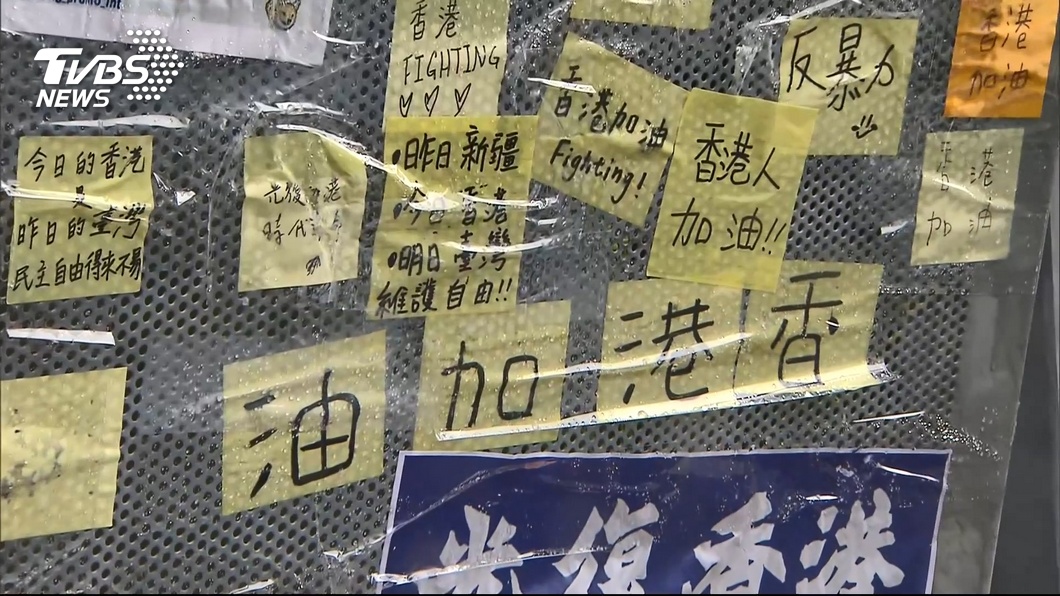 TVBS
NEWS
香港
FIGHTING
香港加油
Fighting!
反暴力
香港
加油
香港人
加油!!
今日的香港
是
昨日的臺灣
民主自由得來不易
光復香港
時代
•昨日 新疆
•今日 香港
•明日 臺灣
維護自由!!
香港
加油
香
港
加
油
光復香港